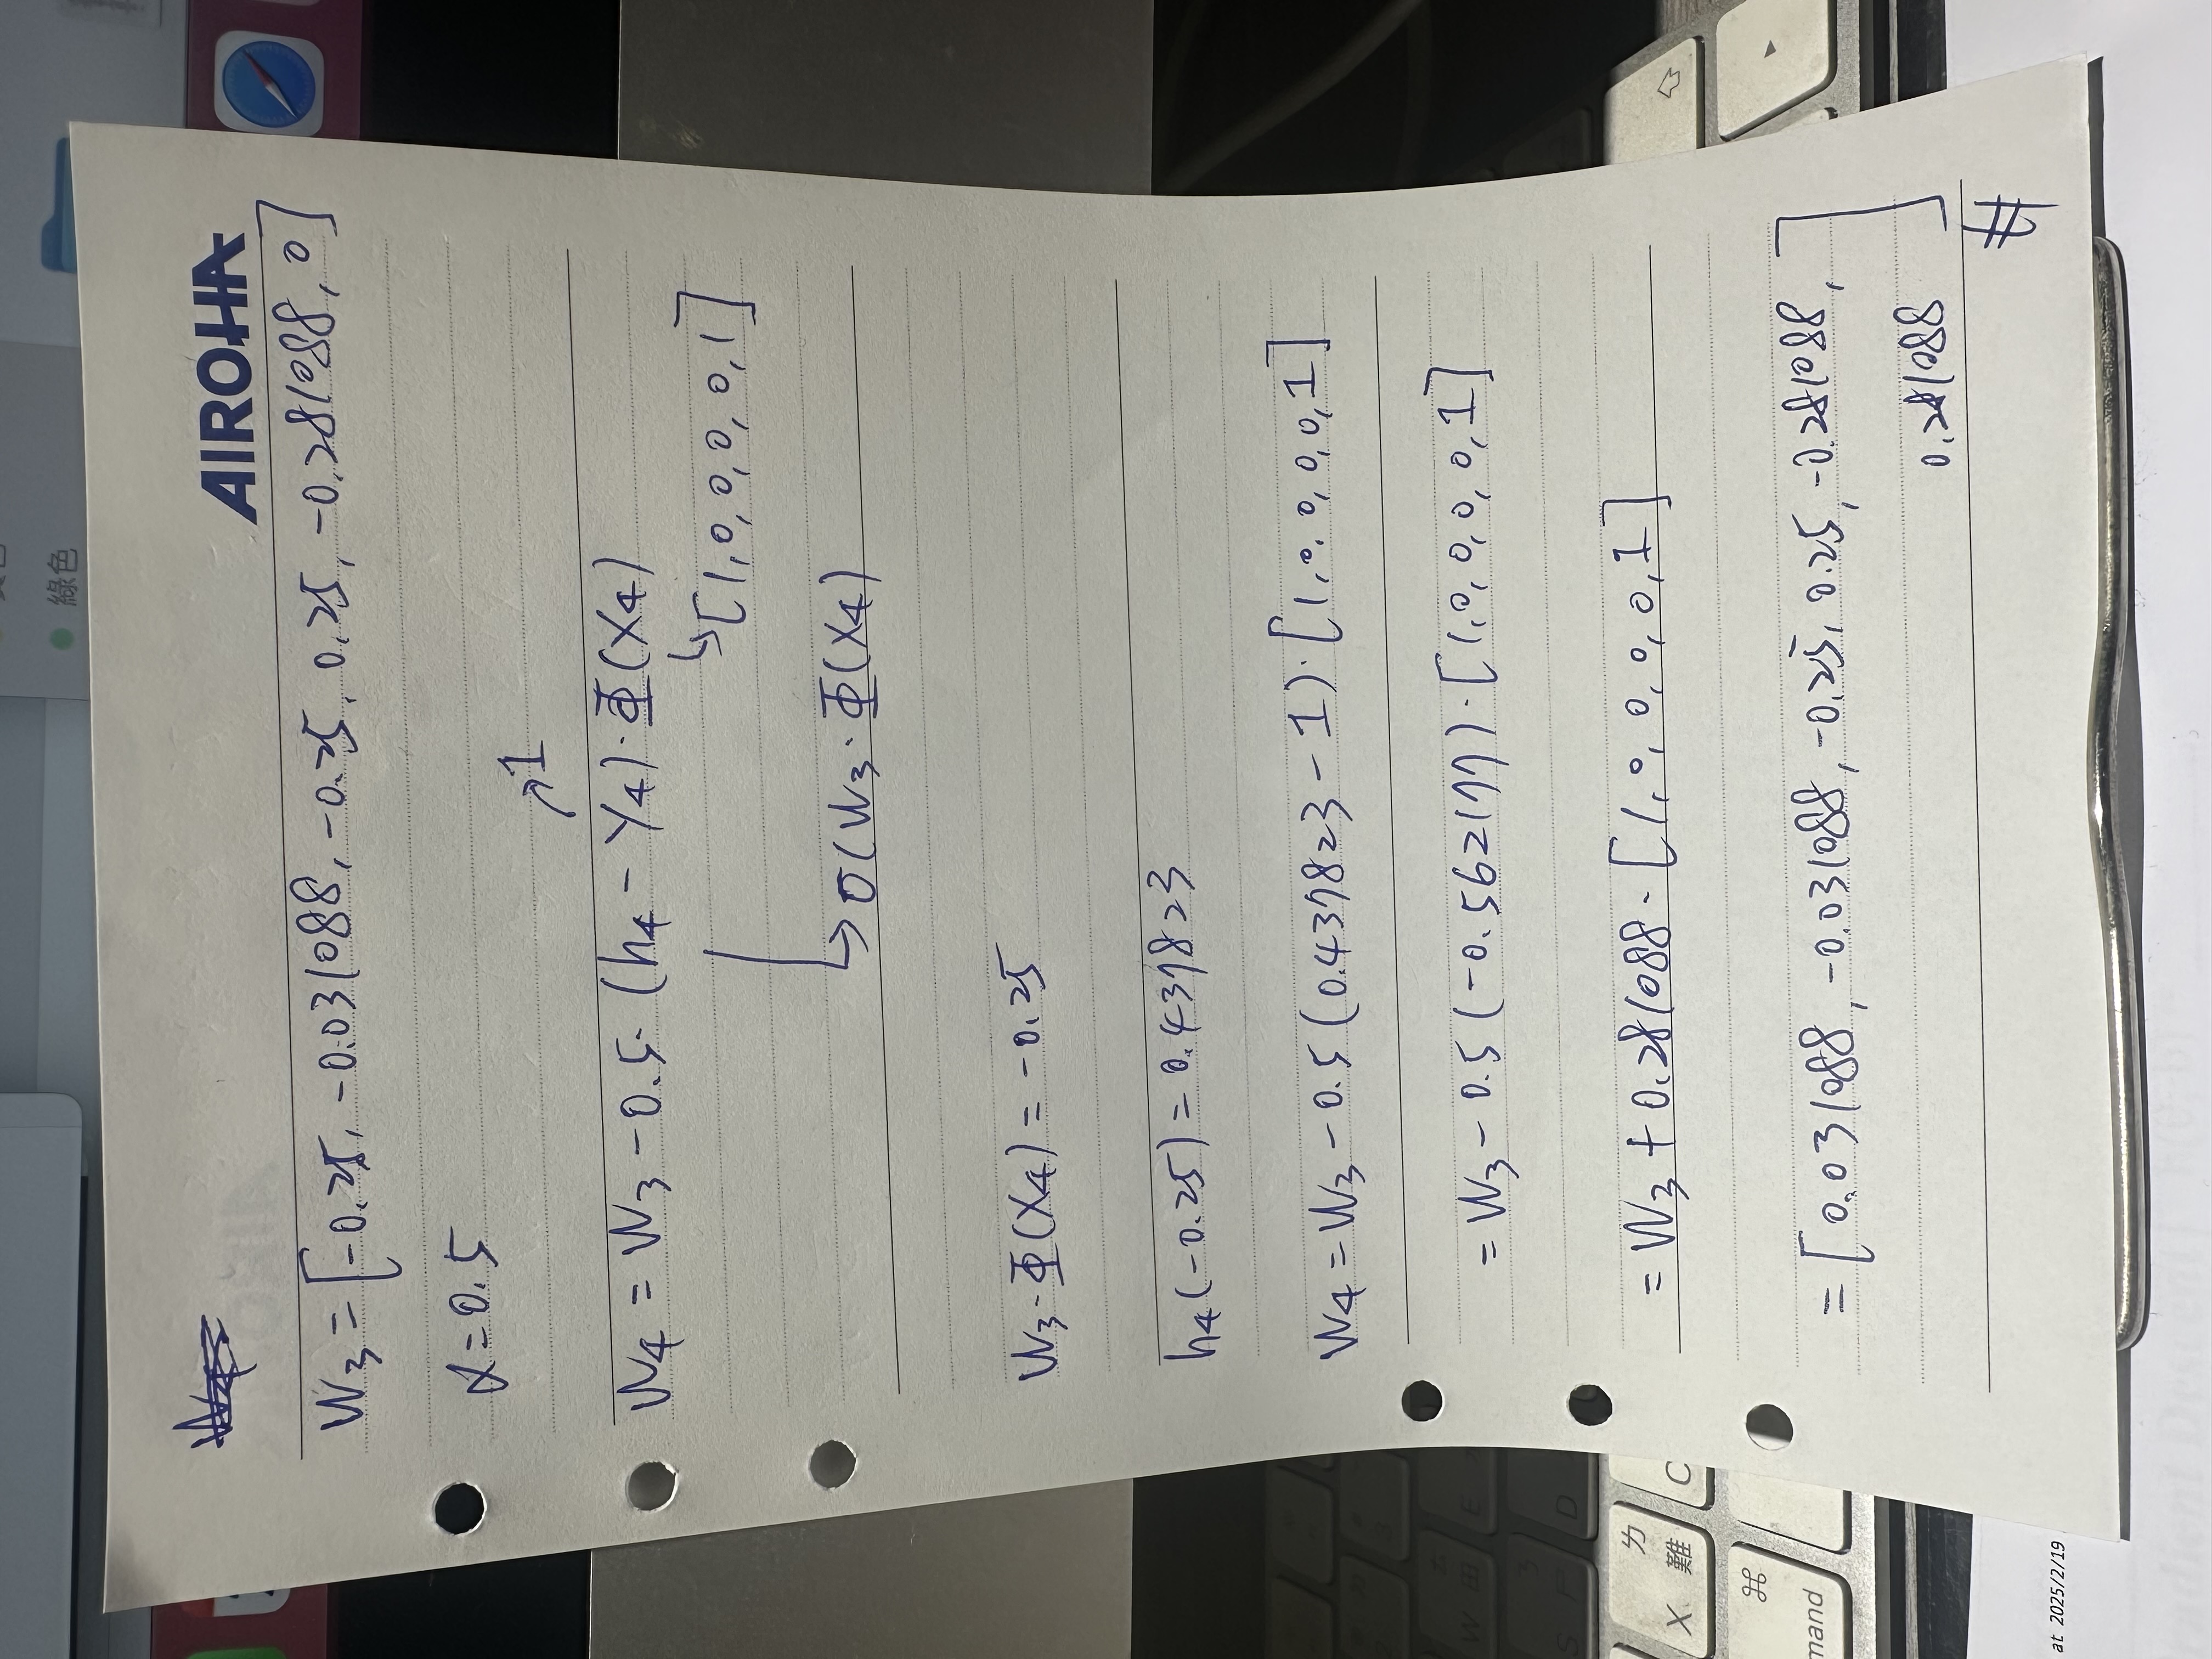 綠色
AIROHA
W3 = [-0.25, -0.031088, -0.25, 0.25, -0.281088, 0]
α = 0.5
↗1
W4 = W3 - 0.5 · (h4 - Y4) · Φ(X4)
↳ [1, 0, 0, 0, 0, 1]
↳ σ(W3 · Φ(X4)
W3 · Φ(X4) = -0.25
h4(-0.25) = 0.437823
W4 = W3 - 0.5 (0.437823 - 1) · [1, 0, 0, 0, 0, 1]
= W3 - 0.5 (-0.562177) · [1, 0, 0, 0, 0, 1]
= W3 + 0.281088 · [1, 0, 0, 0, 0, 1]
= [0.031088, -0.031088, -0.25, 0.25, -0.281088,
0.281088]
#
W 田 E
S D
X 難 ㄌ C
⌘
mand
at 2025/2/19